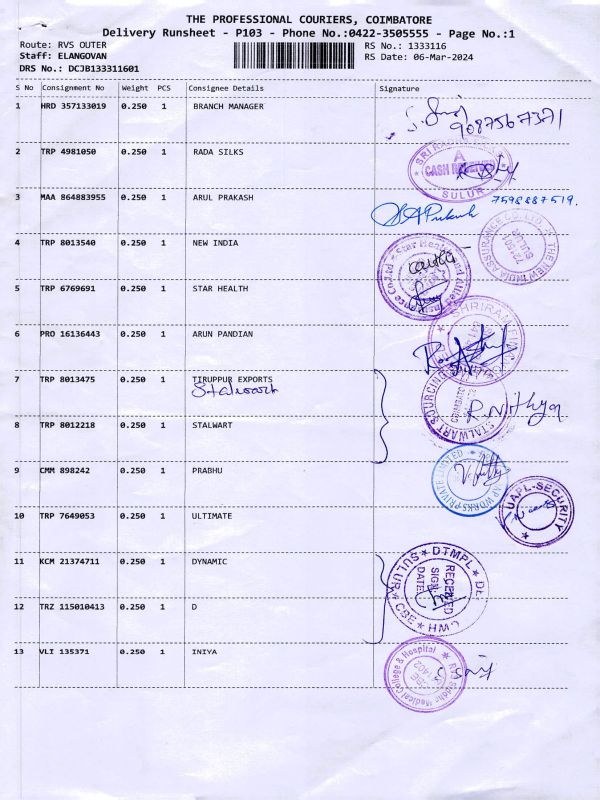 THE PROFESSIONAL COURIERS, COIMBATORE
Delivery Runsheet - P103 - Phone No.:0422-3505555 - Page No.:1
Route: RVS OUTER RS No.: 1333116
Staff: ELANGOVAN RS Date: 06-Mar-2024
DRS No.: DCJB133311601
S No Consignment No Weight PCS Consignee Details Signature
1 HRD 357133019 0.250 1 BRANCH MANAGER
9087567371
2 TRP 4981050 0.250 1 RADA SILKS
CASH RECEIVED
SULUR
3 MAA 864883955 0.250 1 ARUL PRAKASH
7598887519.
THE NEW INDIA ASSURANCE CO. LTD.
SULUR
4 TRP 8013540 0.250 1 NEW INDIA
5 TRP 6769691 0.250 1 STAR HEALTH
Star Health and Allied Insurance Co Ltd
SHRIRAM
6 PRO 16136443 0.250 1 ARUN PANDIAN
7 TRP 8013475 0.250 1 TIRUPPUR EXPORTS
Stalwart
STALWART SOURCING
R.Nithya
8 TRP 8012218 0.250 1 STALWART
9 CMM 898242 0.250 1 PRABHU
WORKS PRIVATE LIMITED
UAPL-SECURITY
10 TRP 7649053 0.250 1 ULTIMATE
11 KCM 21374711 0.250 1 DYNAMIC
SULUR * DTMPL * DE
RECEIVED
SIGN:
DATE:
CBE * HMD
12 TRZ 115010413 0.250 1 D
13 VLI 135371 0.250 1 INIYA
Medical College & Hospital
CBE